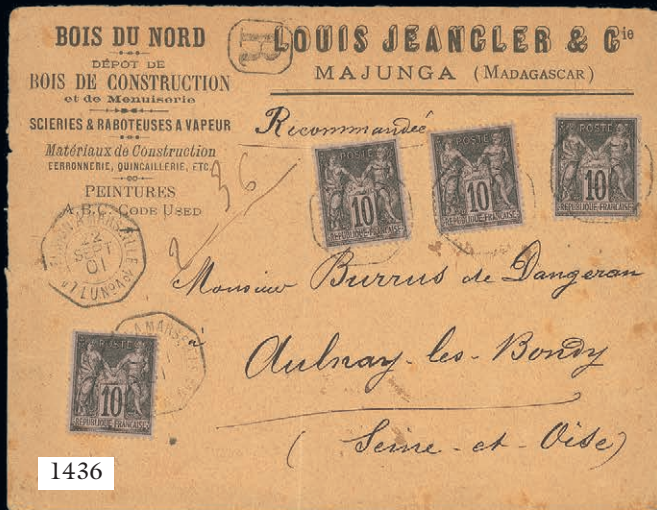 BOIS DU NORD
DÉPOT DE
BOIS DE CONSTRUCTION
et de Menuiserie
SCIERIES & RABOTEUSES A VAPEUR
Matériaux de Construction
FERRONNERIE, QUINCAILLERIE, ETC.
PEINTURES
A.B.C. CODE USED
R
LOUIS JEANGLER & Cie
MAJUNGA (MADAGASCAR)
Recommandée
36
POSTE
10
REPUBLIQUE FRANÇAISE
POSTE
10
REPUBLIQUE FRANÇAISE
POSTE
10
REPUBLIQUE FRANÇAISE
A MARSEILLE
22
SEPT
01
Monsieur Burrus de Dangeran
à
Aulnay-les-Bondy
(Seine-et-Oise)
A MARSEILLE
POSTE
10
REPUBLIQUE FRANÇAISE
1436